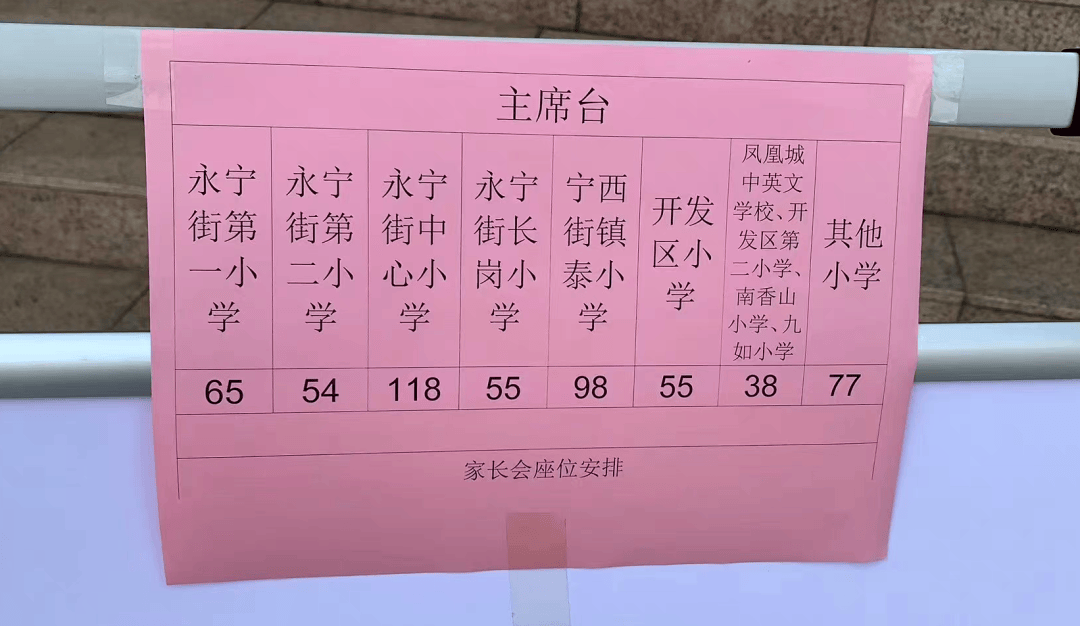 主席台
永宁
街第
一小
学
永宁
街第
二小
学
永宁
街中
心小
学
永宁
街长
岗小
学
宁西
街镇
泰小
学
开发
区小
学
凤凰城
中英文
学校、开
发区第
二小学、
南香山
小学、九
如小学
其他
小学
65 54 118 55 98 55 38 77
家长会座位安排